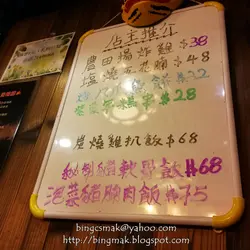 店主推介
農田揚炸雞 $38
塩燒五花腩 $48
$32
$28
炭燒雞扒飯 $68
秘制豬軟骨飯 #68
泡菜豬腩肉飯 #75
bingcsmak@yahoo.com
http://bingmak.blogspot.com